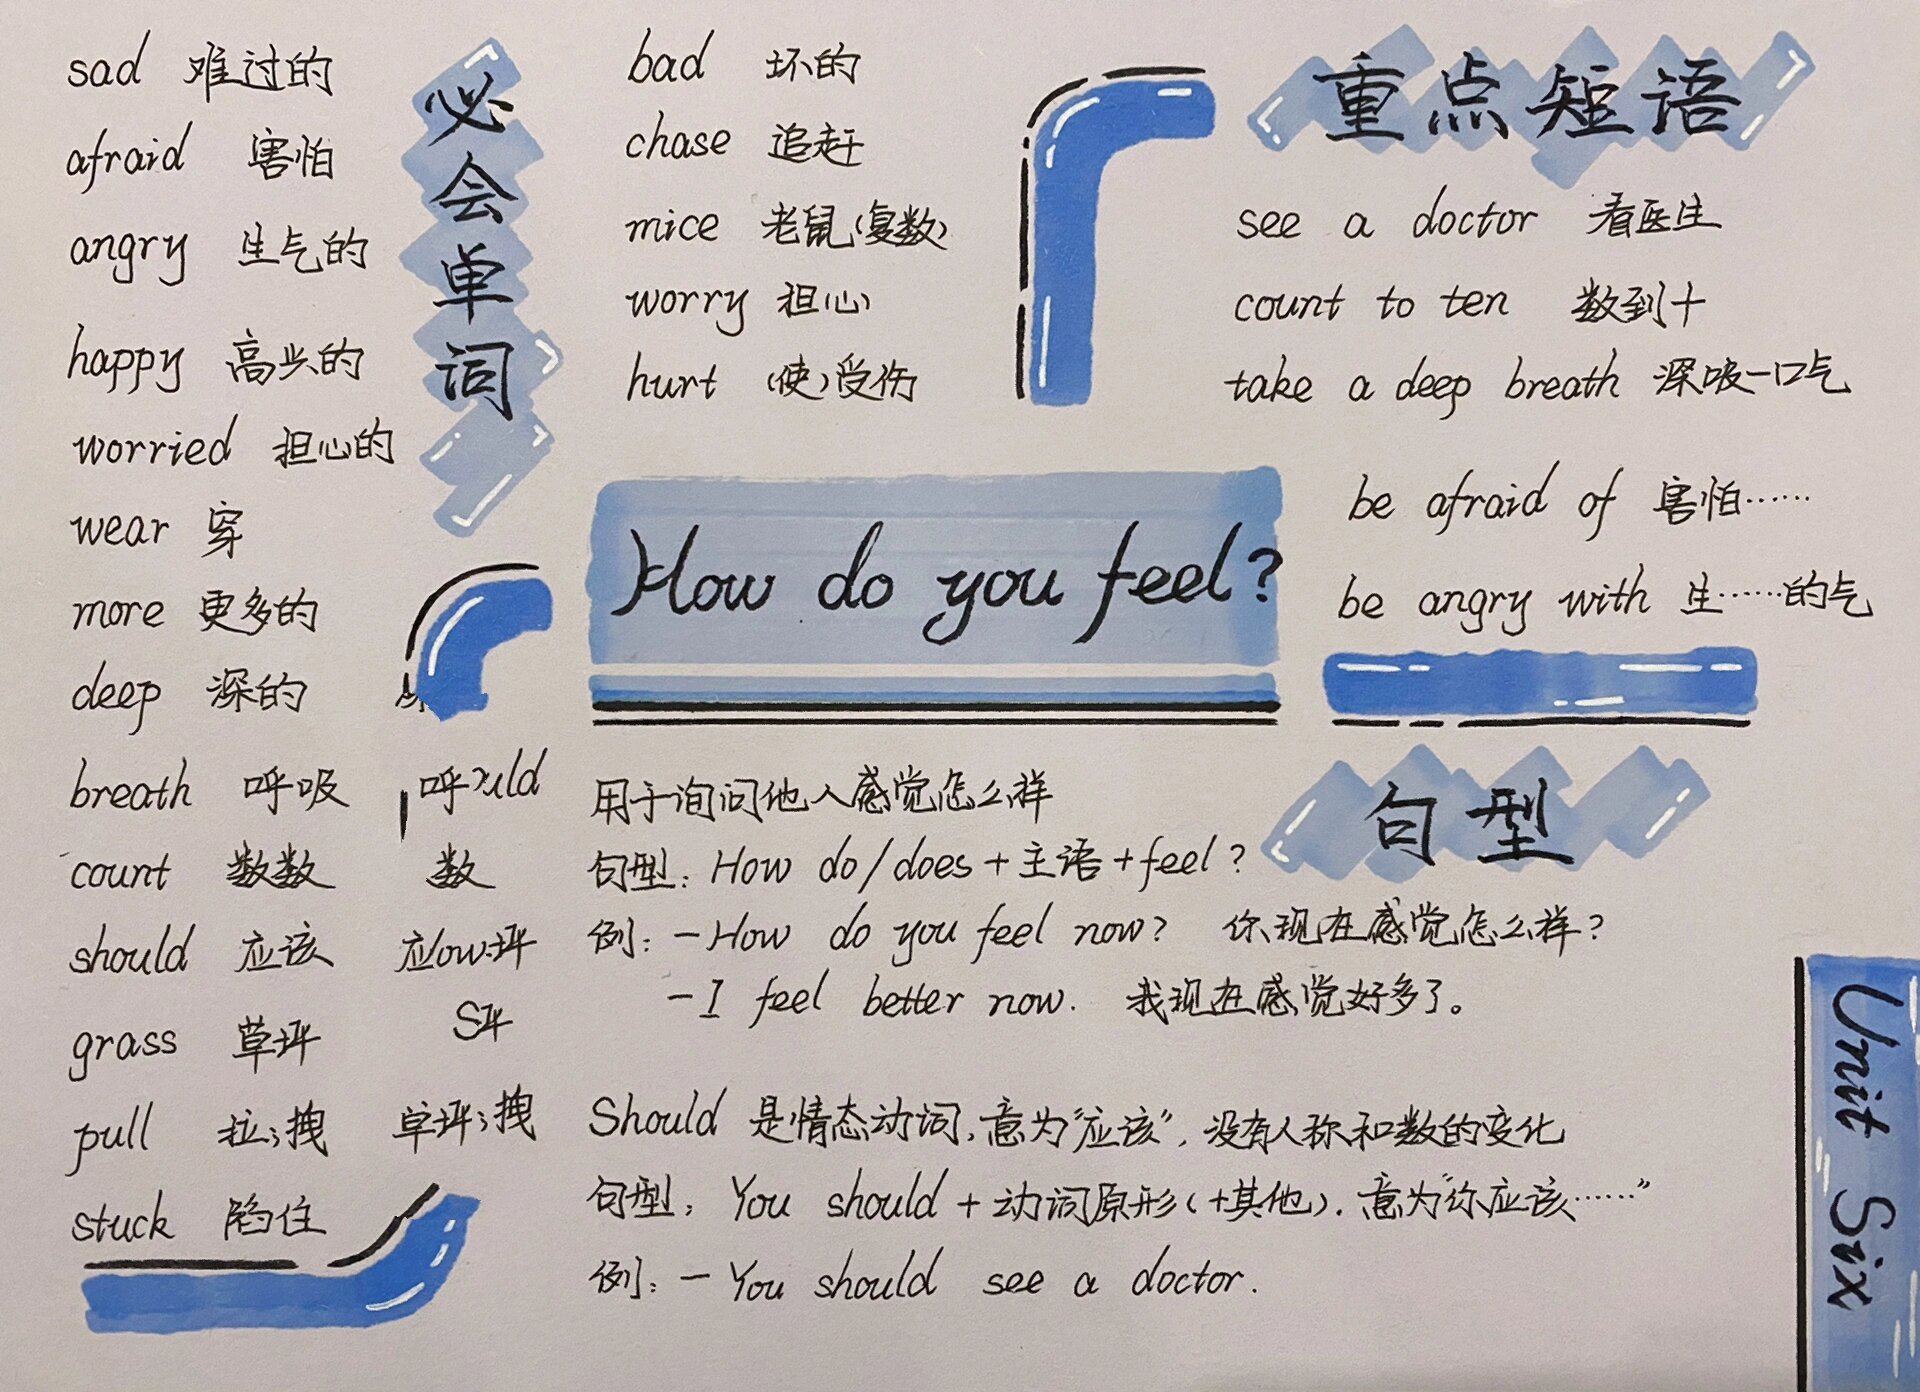 必会单词
sad 难过的
afraid 害怕
angry 生气的
happy 高兴的
worried 担心的
wear 穿
more 更多的
deep 深的
breath 呼吸 呼
count 数数 数
should 应该 应
grass 草坪
pull 拉;拽 草坪;拽
stuck 陷住
bad 坏的
chase 追赶
mice 老鼠(复数)
worry 担心
hurt (使)受伤
How do you feel?
重点短语
see a doctor 看医生
count to ten 数到十
take a deep breath 深吸一口气
be afraid of 害怕……
be angry with 生……的气
句型
用于询问他人感觉怎么样
句型: How do/does+主语+feel?
例: -How do you feel now? 你现在感觉怎么样?
-I feel better now. 我现在感觉好多了。
Should 是情态动词,意为"应该",没有人称和数的变化
句型: You should + 动词原形(+其他).意为"你应该……"
例: - You should see a doctor.
Unit Six